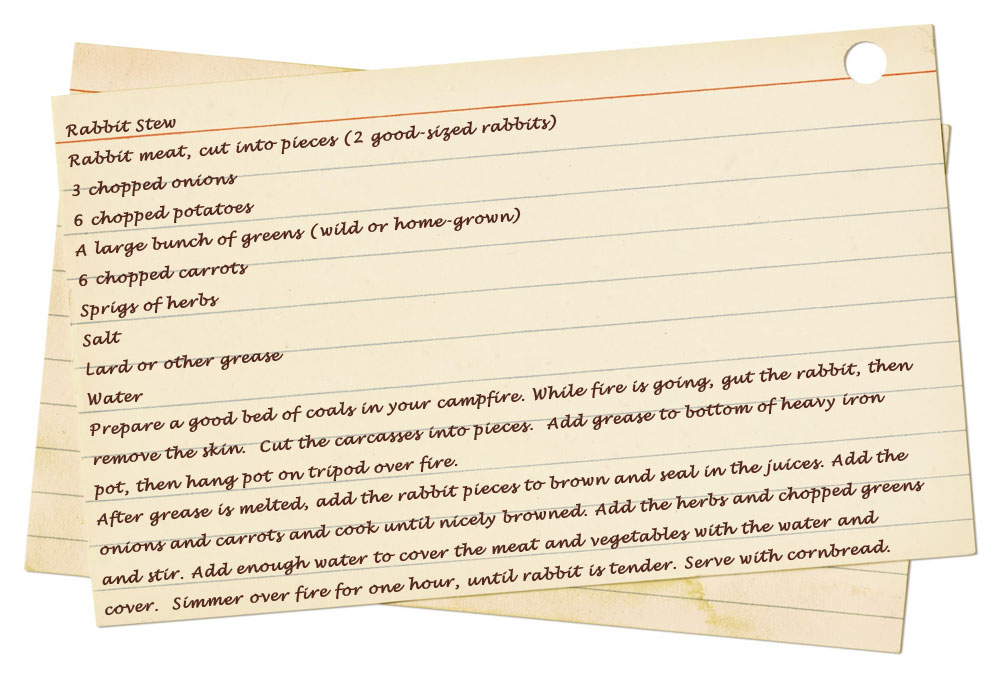 Rabbit Stew
Rabbit meat, cut into pieces (2 good-sized rabbits)
3 chopped onions
6 chopped potatoes
A large bunch of greens (wild or home-grown)
6 chopped carrots
Sprigs of herbs
Salt
Lard or other grease
Water
Prepare a good bed of coals in your campfire. While fire is going, gut the rabbit, then
remove the skin.  Cut the carcasses into pieces.  Add grease to bottom of heavy iron
pot, then hang pot on tripod over fire.
After grease is melted, add the rabbit pieces to brown and seal in the juices. Add the
onions and carrots and cook until nicely browned. Add the herbs and chopped greens
and stir. Add enough water to cover the meat and vegetables with the water and
cover.  Simmer over fire for one hour, until rabbit is tender. Serve with cornbread.